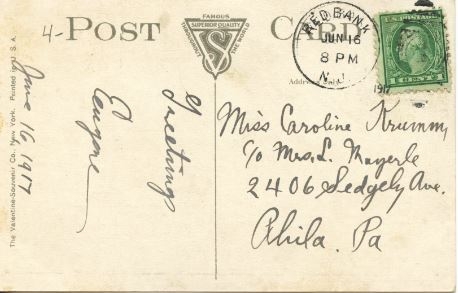 4- POST CARD
FAMOUS
SUPERIOR QUALITY
THROUGHOUT THE WORLD
VS
RED BANK
JUN 16
8 PM
N.J.
1917
U.S. POSTAGE
1 CENT 1
Address Only
The Valentine-Souvenir Co., New York. Printed in U. S. A.
June 16, 1917
Greetings
Eugene
Miss Caroline Krumm,
c/o Mrs. L. Mayerle
2406 Sedgely Ave.
Phila. Pa